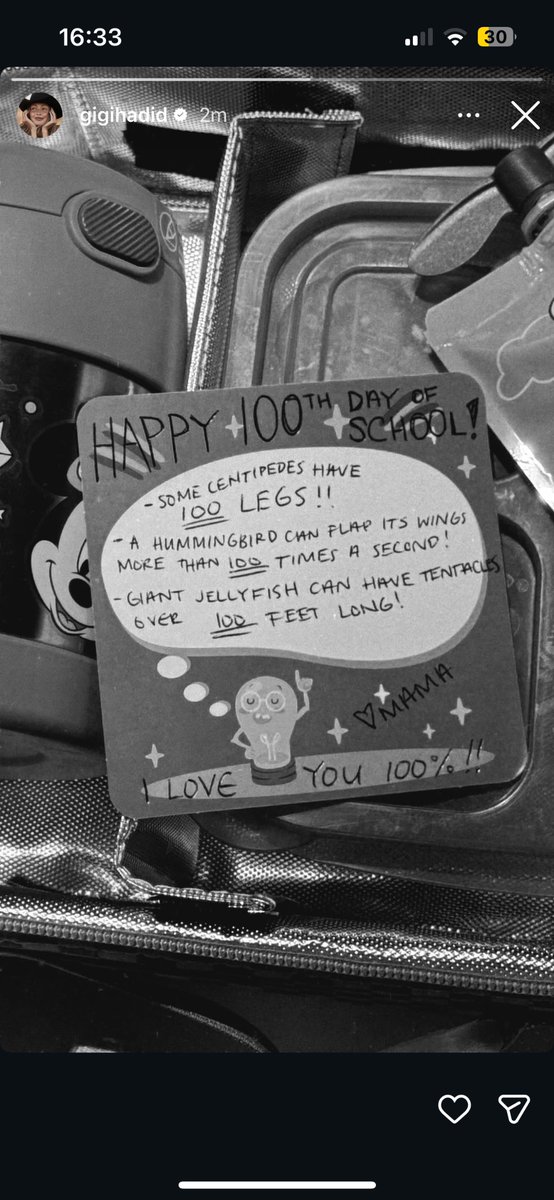 16:33
30
gigihadid 2m
HAPPY 100TH DAY OF
SCHOOL!
- SOME CENTIPEDES HAVE
100 LEGS!!
- A HUMMINGBIRD CAN FLAP ITS WINGS
MORE THAN 100 TIMES A SECOND!
- GIANT JELLYFISH CAN HAVE TENTACLES
OVER 100 FEET LONG!
♡MAMA
I LOVE YOU 100%!!